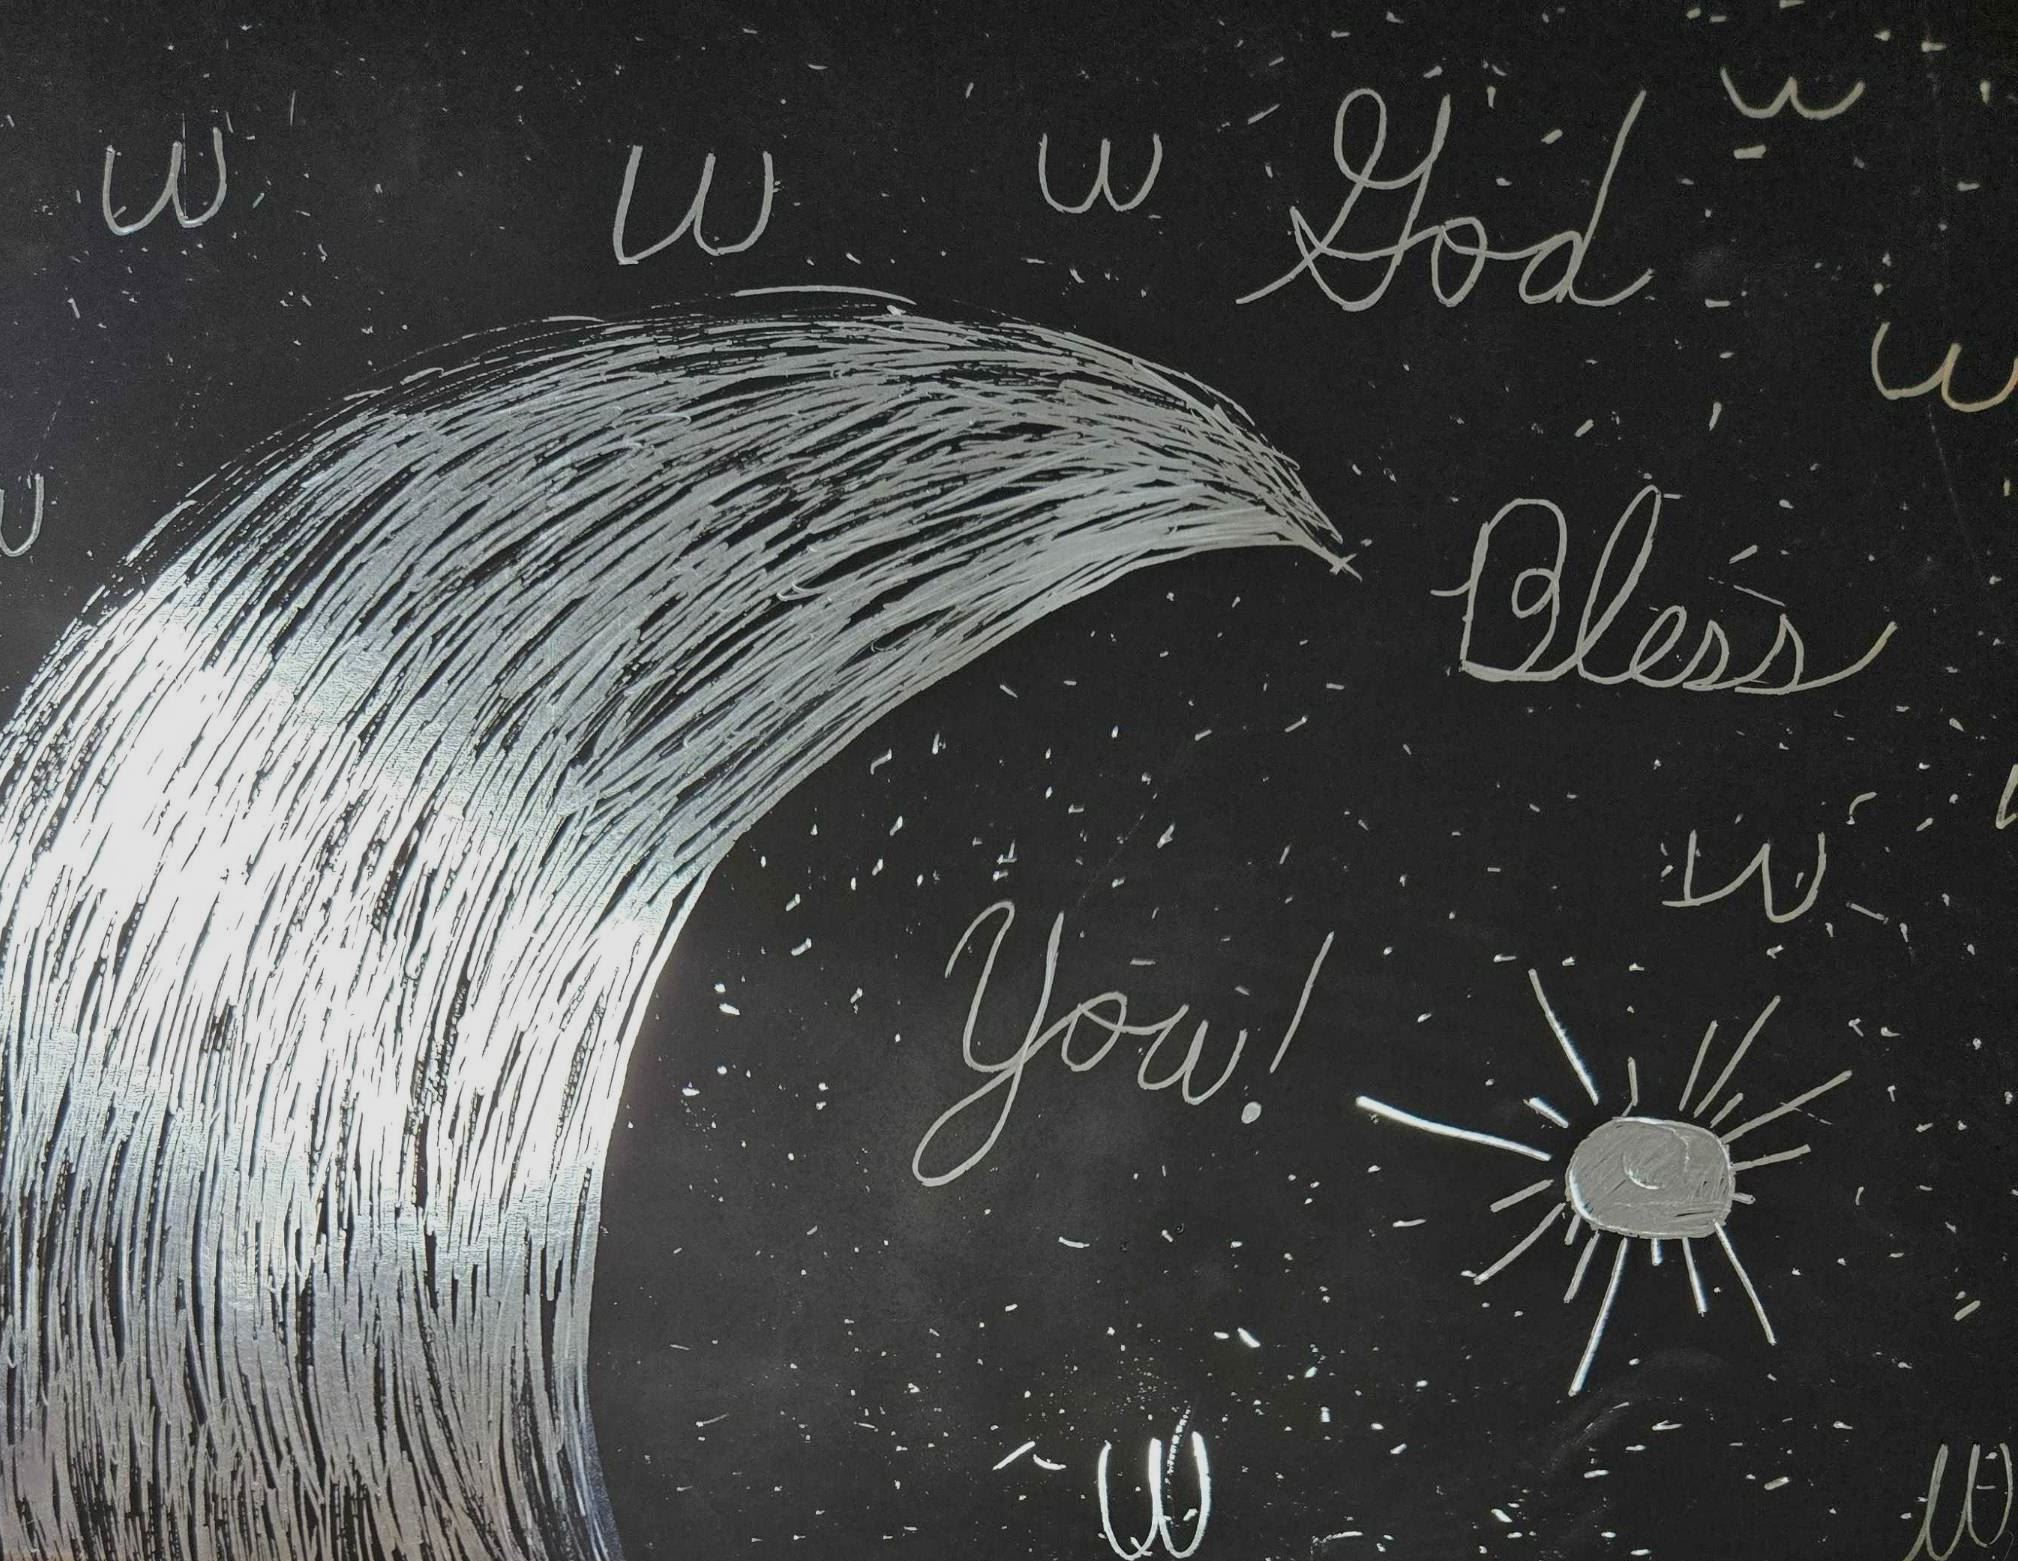 W W W God W
W
Bless
W
You!
W W